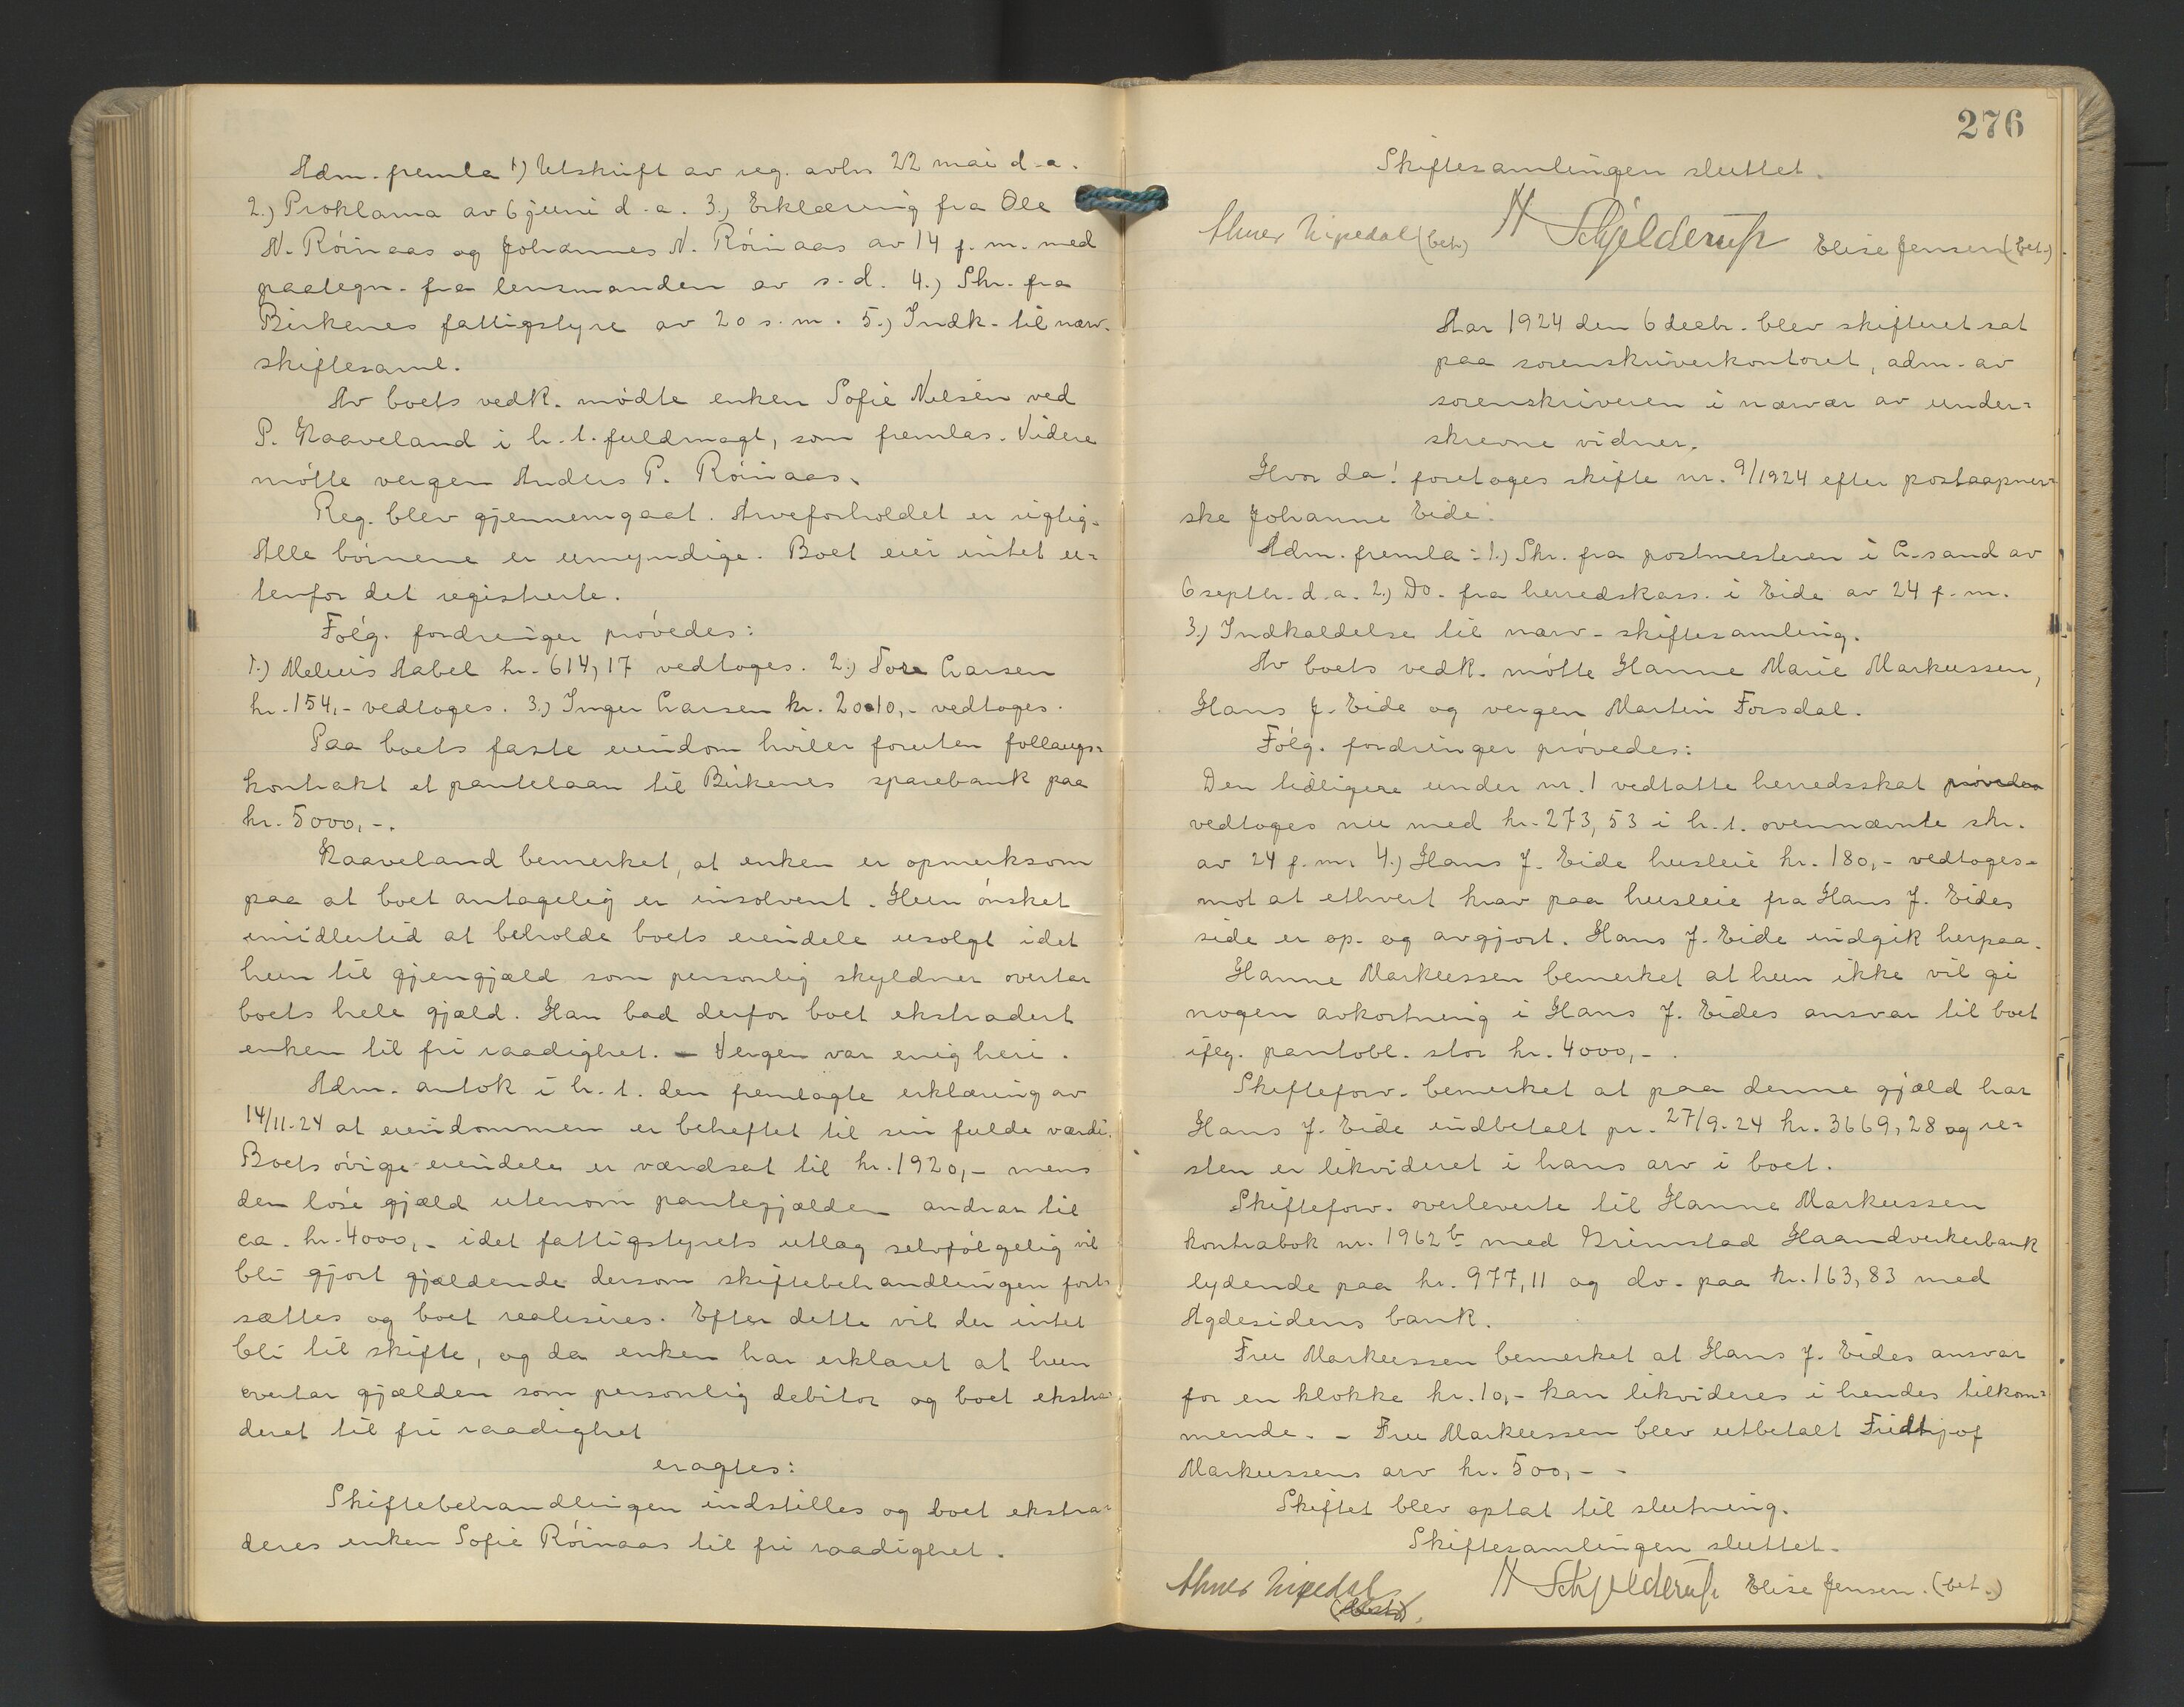 Adm. fremla 1) Utskrift av reg. avhr 22 mai d.a.
2.) Proklama av 6 juni d.a. 3.) Erklæring fra Ole
N. Röinaas og Johannes N. Röinaas av 14 f.m. med
paategn. fra lensmanden av s.d. 4.) Skr. fra
Birkenes fattigstyre av 20 s.m. 5.) Indk. til nærv.
skiftesaml.
Av boets vedk. mödte enken Sofie Nelsen ved
P. Haaveland i h.t. fuldmagt, som fremlas. Videre
mötte vergen Anders P. Röinaas.
Reg. blev gjennemgaat. Arveforholdet er rigtig.
Alle börnene er umyndige. Boet eier intet u=
tenfor det registrerte.
Fölg. fordringer prövedes:
1.) Melvis Aabel kr. 614,17 vedtoges. 2.) Tore Larsen
kr. 154,- vedtoges. 3.) Inger Larsen kr. 2010,- vedtoges.
Paa boets faste eiendom hviler foruten follaugs=
kontrakt et pantelaan til Birkenes sparebank paa
kr. 5000,-.
Haaveland bemerket, at enken er opmerksom
paa at boet antagelig er insolvent. Hun önsket
imidlertid at beholde boets eiendele usolgt idet
hun til gjengjæld som personlig skyldner overtar
boets hele gjæld. Han bad derfor boet ekstradert
enken til fri raadighet. - Vergen var enig heri.
Adm. antok i h.t. den fremlagte erklæring av
14/11-24 at eiendommen er beheftet til sin fulde værdi.
Boets övige eiendele er værdsat til kr. 1920,- mens
den löse gjæld utenom pantegjælden andrar til
ca. kr. 4000,- idet fattigstyrets utlæg selvfölgelig vil
bli gjort gjældende dersom skiftebehandlingen fort=
sættes og boet realiseres. Efter dette vil der intet
bli til skifte, og da enken har erklæret at hun
overtar gjælden som personlig debitor og boet ekstra=
deret til fri raadighet
eragtes:
Skiftebehandlingen indstilles og boet ekstra=
deres enken Sofie Röinaas til fri raadighet.
276
Skiftesamlingen sluttet.
(bet.) H Schjelderup Elise Jensen (bet.)
Aar 1924 den 6 decbr. blev skifteret sat
paa sorenskriverkontoret, adm. av
sorenskriveren i nærvær av under=
skrevne vidner.
Hvor da! foretoges skifte nr. 9/1924 efter postaapner=
ske Johanne Eide.
Adm. fremla: 1.) Skr. fra postmesteren i L.sand av
6 septbr. d.a. 2.) Do. fra herredskass. i Eide av 24 f.m.
3.) Indkaldelse til nærv. skiftesamling.
Av boets vedk. mötte Hanne Marie Markussen,
Hans J. Eide og vergen Martin Forsdal.
Fölg. fordringer prövedes:
Den tidligere under nr. 1 vedtatte herredsskat prövedes
vedtoges nu med kr. 273,53 i h.t. ovennævnte skr.
av 24 f.m. 4.) Hans J. Eide husleie kr. 180,- vedtoges
mot at ethvert krav paa husleie fra Hans J. Eides
side er op- og avgjort. Hans J. Eide indgik herpaa.
Hanne Markussen bemerket at hun ikke vil gi
nogen avkortning i Hans J. Eides ansvar til boet
iflg. pantobl. stor kr. 4000,-.
Skifteforv. bemerket at paa denne gjæld har
Hans J. Eide indbetalt pr. 27/9-24 kr. 3669,28 og re=
sten er likvideret i hans arv i boet.
Skifteforv. overleverte til Hanne Markussen
kontrabok nr. 1962 b med Grimstad Haandverkerbank
lydende paa kr. 977,11 og do. paa kr. 163,83 med
Agdesidens bank.
Fru Markussen bemerket at Hans J. Eides ansvar
for en klokke kr. 10,- kan likvideres i hendes tilkom=
mende. - Fru Markussen blev utbetalt Fridtjof
Markussens arv kr. 500,-
Skiftet blev optat til slutning.
Skiftesamlingen sluttet.
H Schjelderup Elise Jensen. (bet.)